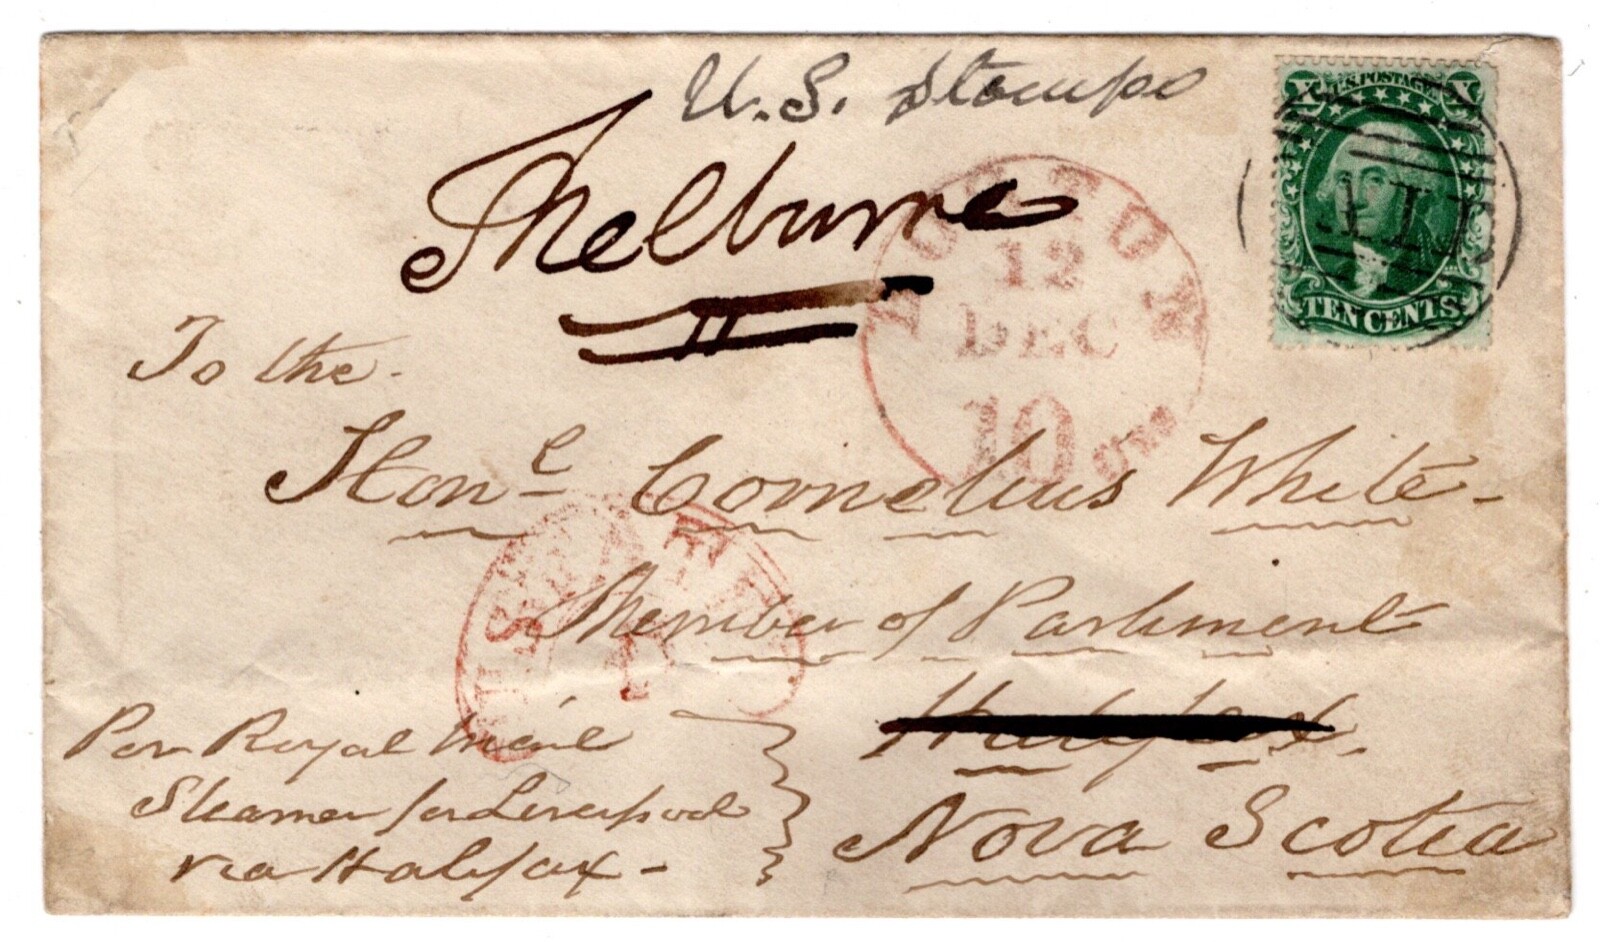 U.S. Stamps
X U.S. POSTAGE X
Shelburne
TEN CENTS
BOSTON
12
DEC
10 cts
To the
Hon.le Cornelius White
Member of Parliment
Halifax.
Nova Scotia
Per Royal Mail
Steamer for Liverpool
via Halifax